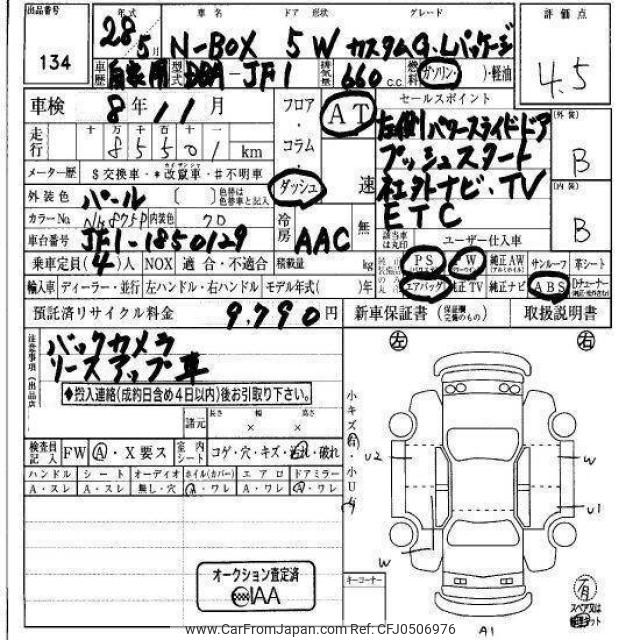 出品番号
134
年式 車名 ドア 形状 グレード
28年 5月 N-BOX 5W カスタムG・Lパッケージ
評価点
4.5
車歴 自家用 型式 DBA-JF1 排気量 660 c.c. 燃料 ガソリン・( )・軽油
車検 8年11月
フロア・コラム・ダッシュ
AT
速
セールスポイント
左側パワースライドドア
プッシュスタート
社外ナビ・TV
ETC
外装 B
内装 B
走行 十 万 千 百 十 一
85501 km
メーター歴 $交換車・*改竄車・#不明車
外装色 パール 〔 〕 色替は色替車と記入
カラーNo. NH875P 内装色 70
車台番号 JF1-1850129
冷房 AAC 無
該当車は丸印
ユーザー仕入車
乗車定員(4)人 NOX 適合・不適合 積載量 kg
PS PW 純正AW サンルーフ 革シート
輸入車 ディーラー・並行 左ハンドル・右ハンドル モデル年式( )年
エアバッグ 純正TV 純正ナビ ABS Dチューナー
預託済リサイクル料金 9,790円
新車保証書 (保証欄完備のもの) 取扱説明書
注意事項(出品店)
バックカメラ
リースアップ車
◆搬入連絡(成約日含め4日以内)後お引取り下さい。
諸元 長さ 幅 高さ
× ×
検査員記入 FW Ⓐ・X要ス 室内シート コゲ・穴・キズ・汚れ・破れ
ハンドル シート オーディオ ホイル(カバー) エアロ ドアミラー
A・スレ A・スレ 無し・穴 A・ワレ A・ワレ A・ワレ
小キズ有・小U有
左 右
U2
W
U1
W
A1
キーコーナー
オークション査定済
IAA
有
スペア又は
www.CarFromJapan.com Ref:CFJ0506976